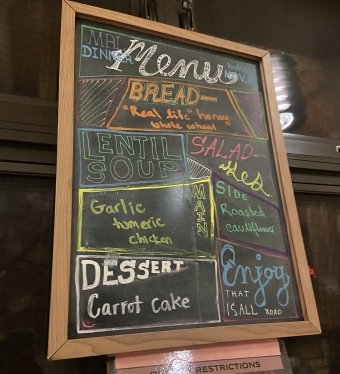 MPI
DINNER
Menu
BREAD—
"Real life" honey
whole wheat
LENTIL
SOUP
SALAD—
MAIN
Garlic
tumeric
chicken
SIDE
Roasted
cauliflower
DESSERT
Carrot cake
Enjoy
THAT
IS ALL xoxo
RESTRICTIONS